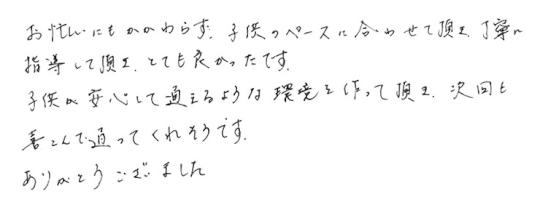 お忙しいにもかかわらず、子供のペースに合わせて頂き、丁寧に
指導して頂き、とても良かったです。
子供が安心して通えるような環境を作って頂き、次回も
喜こんで通ってくれそうです。
ありがとうございました